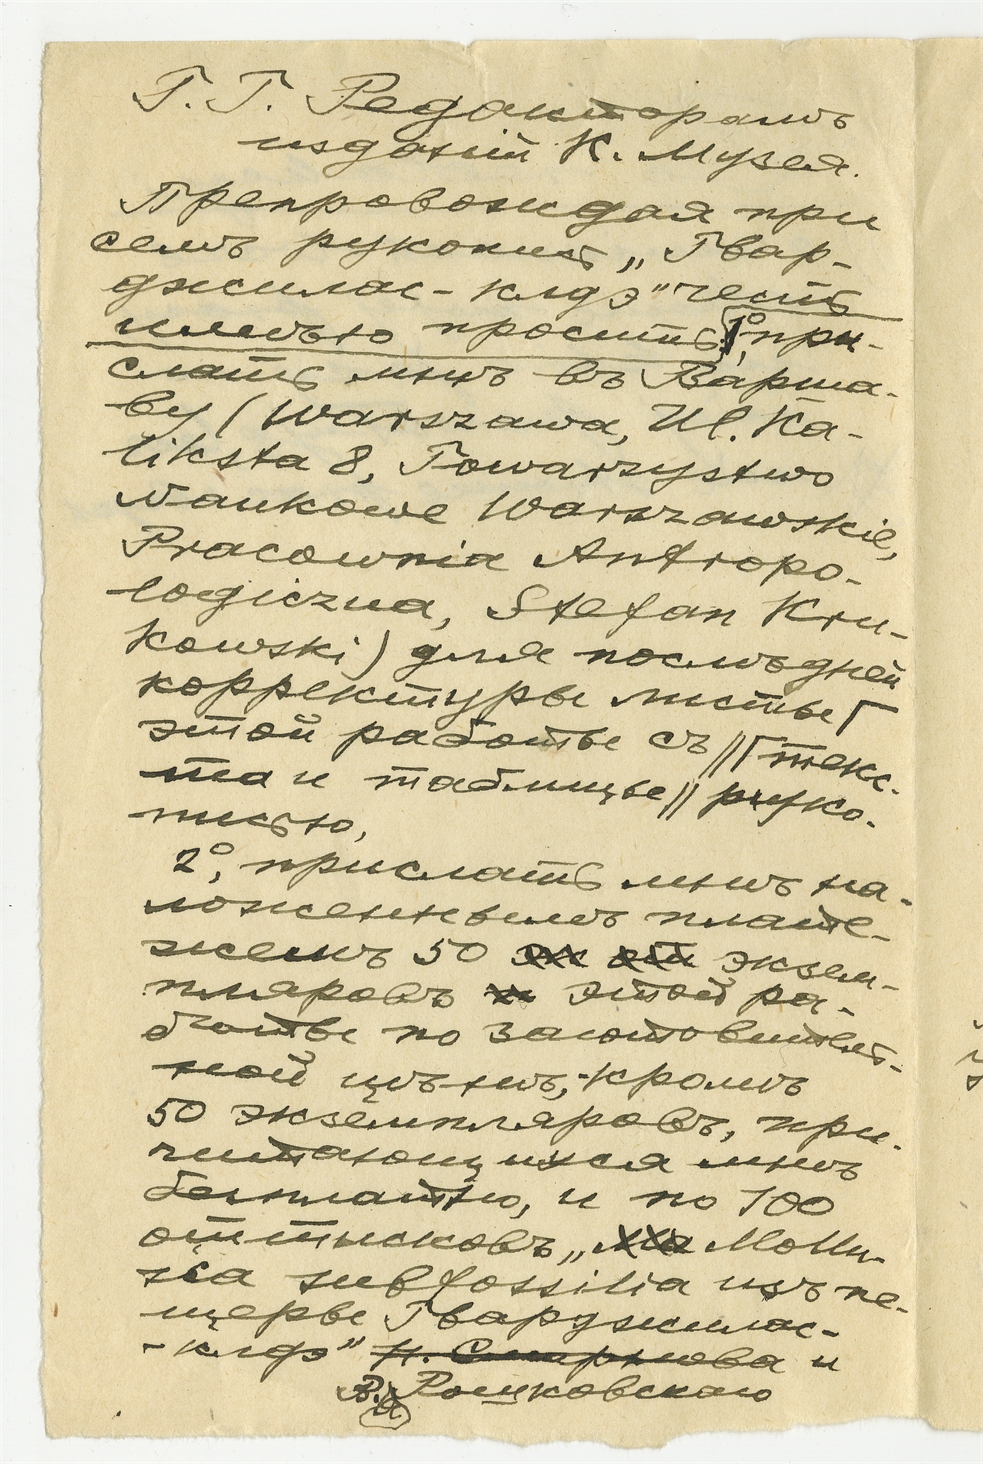 Г. Г. Редакторамъ
изданій К. Музея.
Препровождая при
семъ рукопись „Гвар-
джилас-клдэ" честь
имѣю просить 1°, при-
слать мнѣ въ Варша-
ву (Warszawa, Ul. Ka-
liksta 8, Towarzystwo
Naukowe Warszawskie,
Pracownia Antropo-
logiczna, Stefan Kru-
kowski) для послѣдней
корректуры листы
этой работы съ || текс-
та и таблицы || руко-
писью,
2°, прислать мнѣ на-
ложеннымъ плате-
жемъ 50 экзем-
пляровъ этой ра-
боты по заготовитель-
ной цѣнѣ, - кромѣ
50 экземпляровъ, при-
читающихся мнѣ
безплатно, и по 100
оттисковъ „Mollu-
sca subfossilia изъ пе-
щеры Гварджилас-
-клдэ" Н. Смирнова и
В. А. Рошковскаго